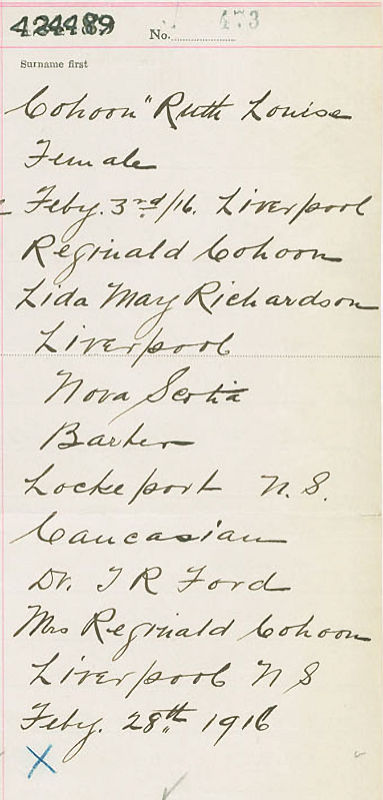 424489
No. 473
Surname first
Cohoon" Ruth Louise
Female
Feby. 3rd/16. Liverpool
Reginald Cohoon
Lida May Richardson
Liverpool
Nova Scotia
Barber
Lockeport N.S.
Caucasian
Dr. J R Ford
Mrs Reginald Cohoon
Liverpool N S
Feby. 28th 1916
X